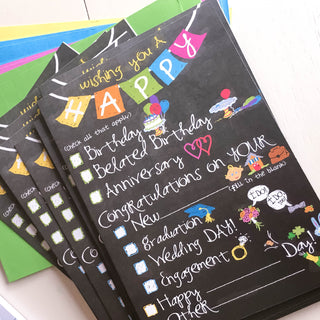 wishing you A
HAPPY
(check all that apply)
Birthday
Belated Birthday
Anniversary
Congratulations on YOUR
(fill in the blank)
New
Graduation
Wedding DAY!
I DO!
I DO, too!
Engagement
Happy Day!
Other